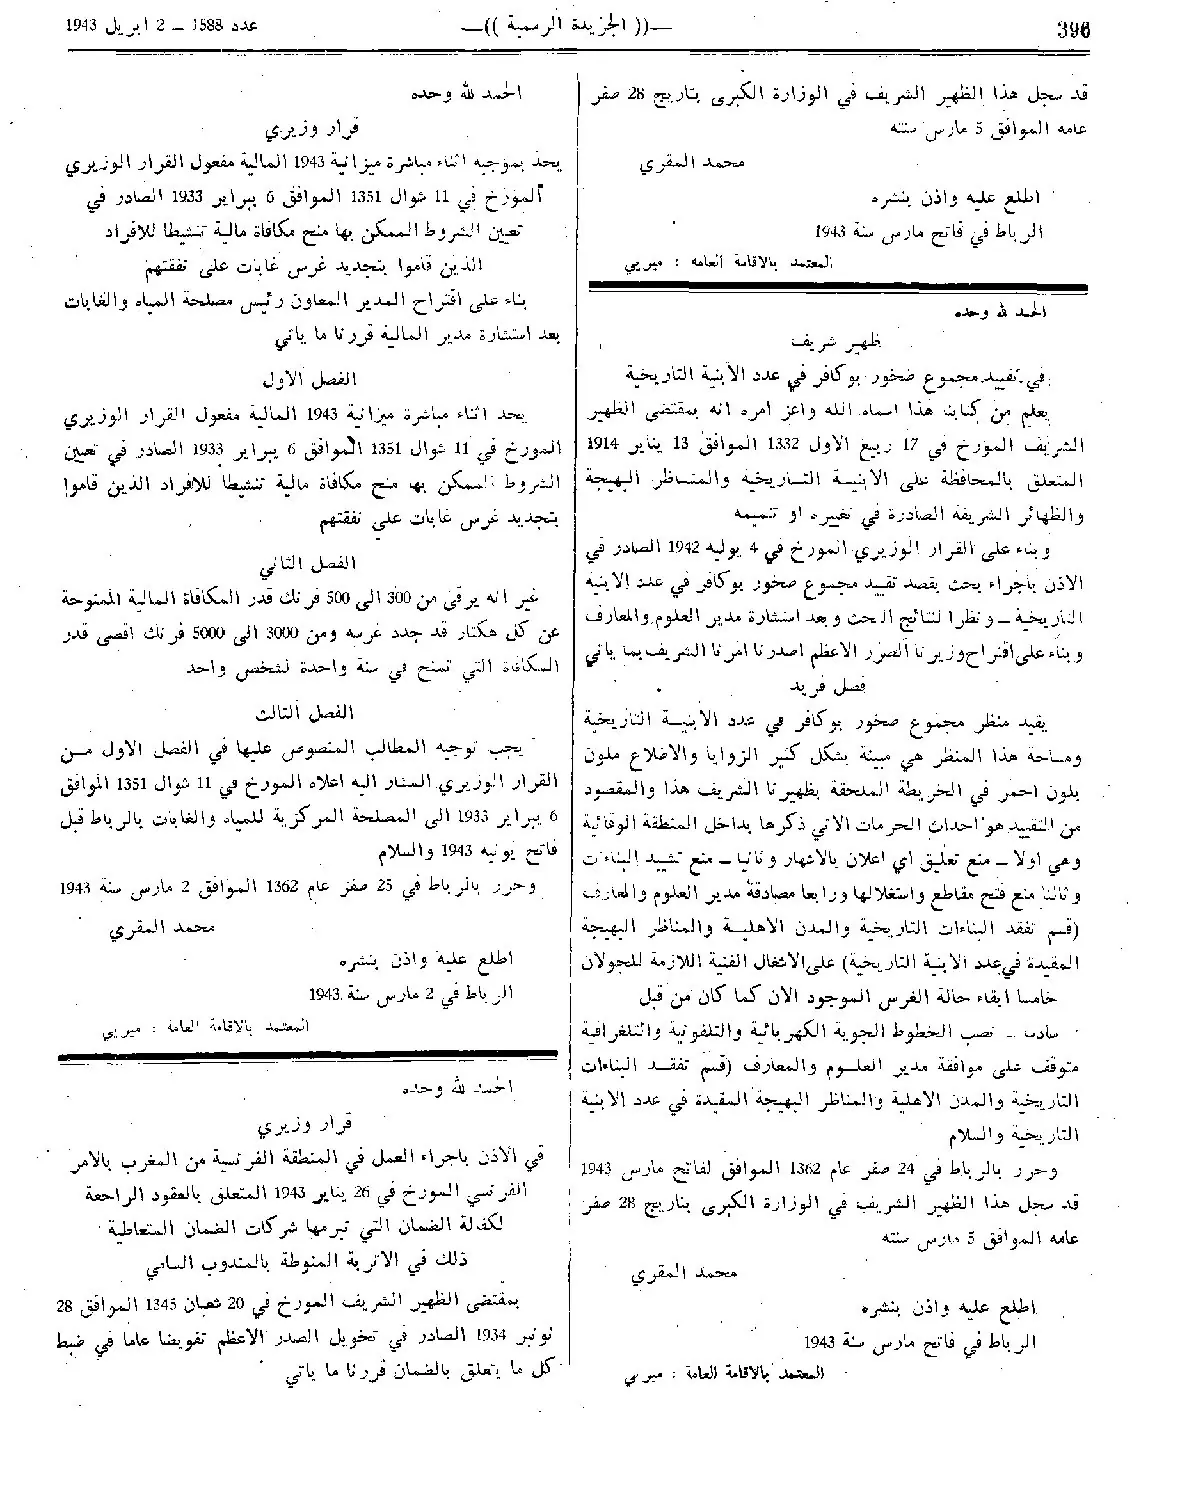 396
—(( الجريدة الرسمية ))—
عدد 1588 — 2 ابريل 1943
قد سجل هذا الظهير الشريف في الوزارة الكبرى بتاريخ 28 صفر
عامه الموافق 5 مارس سنته
محمد المقري
اطلع عليه واذن بنشره
الرباط في فاتح مارس سنة 1943
المعتمد بالاقامة العامة : ميريي
الحمد لله وحده
ظهير شريف
في تقييد مجموع صخور بوكافر في عدد الأبنية التاريخية
يعلم من كتابنا هذا اسماه الله واعز امره انه بمقتضى الظهير
الشريف المورخ في 17 ربيع الاول 1332 الموافق 13 يناير 1914
المتعلق بالمحافظة على الابنية التاريخية والمناظر البهيجة
والظهائر الشريفة الصادرة في تغييره او تتميمه
وبناء على القرار الوزيري المورخ في 4 يوليه 1942 الصادر في
الاذن باجراء بحث بقصد تقييد مجموع صخور بوكافر في عدد الابنية
التاريخية – ونظرا لنتائج البحث وبعد استشارة مدير العلوم والمعارف
وبناء على اقتراح وزيرنا الصدر الاعظم اصدرنا امرنا الشريف بما ياتي
فصل فريد
يقيد منظر مجموع صخور بوكافر في عدد الابنية التاريخية
ومساحة هذا المنظر هي مبينة بشكل كثير الزوايا والاضلاع ملون
بلون احمر في الخريطة الملحقة بظهيرنا الشريف هذا والمقصود
من التقييد هو احداث الحرمات الاتي ذكرها بداخل المنطقة الوقائية
وهي اولا – منع تعليق اي اعلان بالاشهار وثانيا – منع تشييد البناءات
وثالثا منع فتح مقاطع واستغلالها ورابعا مصادقة مدير العلوم والمعارف
(قسم تفقد البناءات التاريخية والمدن الاهلية والمناظر البهيجة
المقيدة في عدد الابنية التاريخية) على الاشغال الفنية اللازمة للجولان
خامسا ابقاء حالة الغرس الموجود الان كما كان من قبل
سادسا – نصب الخطوط الجوية الكهربائية والتلفونية والتلغرافية
متوقف على موافقة مدير العلوم والمعارف (قسم تفقد البناءات
التاريخية والمدن الاهلية والمناظر البهيجة المقيدة في عدد الابنية
التاريخية والسلام
وحرر بالرباط في 24 صفر عام 1362 الموافق لفاتح مارس 1943
قد سجل هذا الظهير الشريف في الوزارة الكبرى بتاريخ 28 صفر
عامه الموافق 5 مارس سنته
محمد المقري
اطلع عليه واذن بنشره
الرباط في فاتح مارس سنة 1943
المعتمد بالاقامة العامة : ميريي
الحمد لله وحده
قرار وزيري
يحد بموجبه اثناء مباشرة ميزانية 1943 المالية مفعول القرار الوزيري
المورخ في 11 شوال 1351 الموافق 6 يبراير 1933 الصادر في
تعيين الشروط الممكن بها منح مكافاة مالية تنشيطا للافراد
الذين قاموا بتجديد غرس غابات على نفقتهم
بناء على اقتراح المدير المعاون رئيس مصلحة المياه والغابات
بعد استشارة مدير المالية قررنا ما ياتي
الفصل الاول
يحد اثناء مباشرة ميزانية 1943 المالية مفعول القرار الوزيري
المورخ في 11 شوال 1351 الموافق 6 يبراير 1933 الصادر في تعيين
الشروط الممكن بها منح مكافاة مالية تنشيطا للافراد الذين قاموا
بتجديد غرس غابات علي نفقتهم
الفصل الثاني
غير انه يرقى من 300 الى 500 فرنك قدر المكافاة المالية الممنوحة
عن كل هكتار قد جدد غرسه ومن 3000 الى 5000 فرنك اقصى قدر
المكافاة التي تمنح في سنة واحدة لشخص واحد
الفصل الثالث
يجب توجيه المطالب المنصوص عليها في الفصل الاول من
القرار الوزيري المشار اليه اعلاه المورخ في 11 شوال 1351 الموافق
6 يبراير 1933 الى المصلحة المركزية للمياه والغابات بالرباط قبل
فاتح يونيه 1943 والسلام
وحرر بالرباط في 25 صفر عام 1362 الموافق 2 مارس سنة 1943
محمد المقري
اطلع عليه واذن بنشره
الرباط في 2 مارس سنة 1943.
المعتمد بالاقامة العامة : ميريي
الحمد لله وحده
قرار وزيري
في الاذن باجراء العمل في المنطقة الفرنسية من المغرب بالامر
الفرنسي المورخ في 26 يناير 1943 المتعلق بالعقود الراجعة
لكفالة الضمان التي تبرمها شركات الضمان المتعاطية
ذلك في الاترية المنوطة بالمندوب السامي
بمقتضى الظهير الشريف المورخ في 20 شعبان 1345 الموافق 28
نونبر 1934 الصادر في تخويل الصدر الاعظم تفويضا عاما في ضبط
كل ما يتعلق بالضمان قررنا ما ياتي